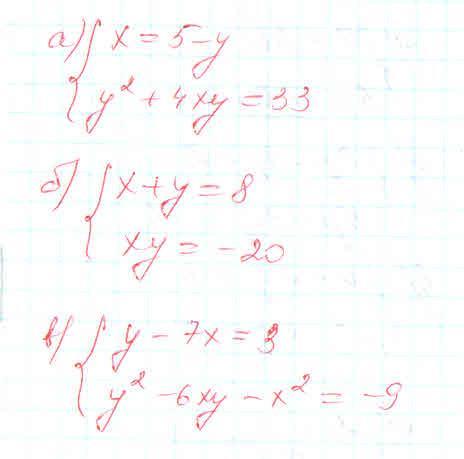 а) { x = 5 - y
y² + 4xy = 33
б) { x + y = 8
xy = -20
в) { y - 7x = 3
y² - 6xy - x² = -9